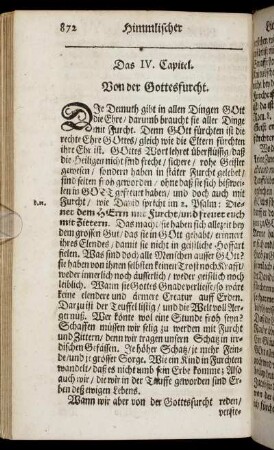 872 Himmlischer
Das IV. Capitel.
Von der Gottesfurcht.
DJe Demuth gibt in allen Dingen GOtt
die Ehre / darumb braucht sie aller Dinge
mit Furcht. Denn GOtt fürchten ist die
rechte Ehre GOttes / gleich wie die Eltern fürchten
ihre Ehr ist. GOttes Wort lehret überflüssig / daß
die Heiligen nicht sind freche / sichere / rohe Geister
gewesen / sondern haben in stäter Furcht gelebet /
sind selten froh geworden / ohne daß sie sich bißwei-
len in GOTT gefreuet haben / und doch auch mit
b. 11. Furcht / wie David spricht im 2. Psalm: Die-
net dem HErrn mit Furcht / und freuet euch
mit Zittern. Das macht sie haben sich allezeit bey
dem grossen Gut / das sie in GOtt gehabt / erinnert
ihres Elendes / damit sie nicht in geistliche Hoffart
fielen. Was sind doch alle Menschen ausser GOtt?
sie haben von ihnen selbst keinen Trost noch Krafft /
weder innerlich noch äusserlich / weder geistlich noch
leiblich. Wann sie Gottes Gnade verliesse / so wäre
keine elendere und ärmere Creatur auff Erden.
Darzu ist der Teuffel listig / und die Welt voll Aer-
genuß. Wer könte wol eine Stunde froh seyn?
Schaffen müssen wir selig zu werden mit Furcht
und Zittern / denn wir tragen unsern Schatz in ir-
dischen Gefässen. Je höher Schatz / je mehr Fein-
de / und je grösser Sorge. Wie ein Kind in Furchten
wandelt / daß es nicht umb sein Erbe komme; Also
auch wir / die wir in der Tauffe geworden sind Er-
ben deß ewigen Lebens.
Wann wir aber von der Gottesfurcht reden /